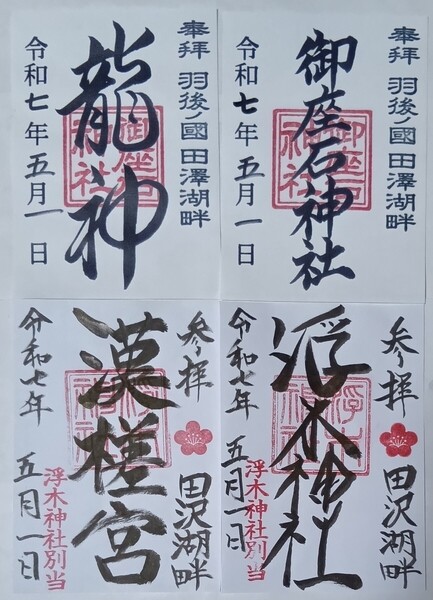 奉拝 羽後ノ國田澤湖畔
御座石神社
御座石神社
令和七年五月一日
奉拝 羽後ノ國田澤湖畔
龍神
御座石神社
令和七年五月一日
参拝 田沢湖畔
浮木神社
浮木神社
浮木神社別当
令和七年 五月一日
参拝 田沢湖畔
漢槎宮
浮木神社別当
令和七年 五月一日